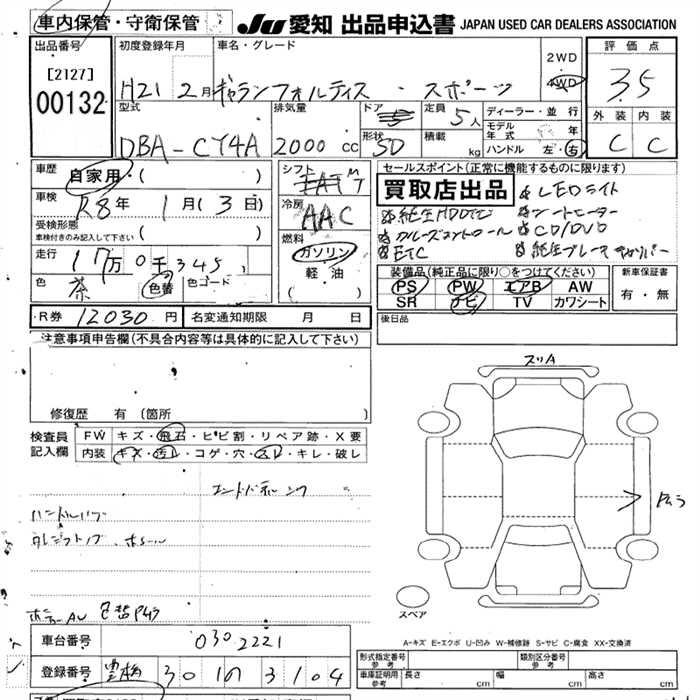 車内保管・守衛保管
JU 愛知 出品申込書 JAPAN USED CAR DEALERS ASSOCIATION
出品番号
[2127]
00132
初度登録年月
H21 2月
車名・グレード
ギャランフォルティス・スポーツ
2WD
4WD
評価点
3.5
外装 内装
C C
型式
DBA-CY4A
排気量
2000 cc
ドア
形状
5D
定員
5人
積載
kg
ディーラー・並行
モデル年式 年
ハンドル 左・右
車歴
自家用・( )
車検
R8年 1月(3日)
受検形態
車検付きのみ記入して下さい ( )
走行
17万0千345
色
茶
色替
色コード
シフト
冷房
AAC
燃料
ガソリン
軽・油
セールスポイント(正常に機能するものに限ります)
買取店出品
LEDライト
純正HDDナビ
シートヒーター
クルーズコントロール
CD/DVD
ETC
装備品(純正品に限り○をつけてください)
PS PW エアB AW
SR ナビ TV カワシート
新車保証書
有・無
R券 12030 円
名変通知期限 月 日
後日品
注意事項申告欄(不具合内容等は具体的に記入して下さい)
修復歴 有 (箇所 )
検査員記入欄
FW キズ・飛石・ヒビ割・リペア跡・X要
内装 キズ・汚レ・コゲ・穴・スレ・キレ・破レ
スリA
ムラ
スペア
A-キズ E-エクボ U-凹み W-補修跡 S-サビ C-腐食 XX-交換済
車台番号 0302221
登録番号 豊橋 301 3104
形式指定番号 参考
類別区分番号 参考
車庫証明用 参考
長さ cm
幅 cm
高さ cm